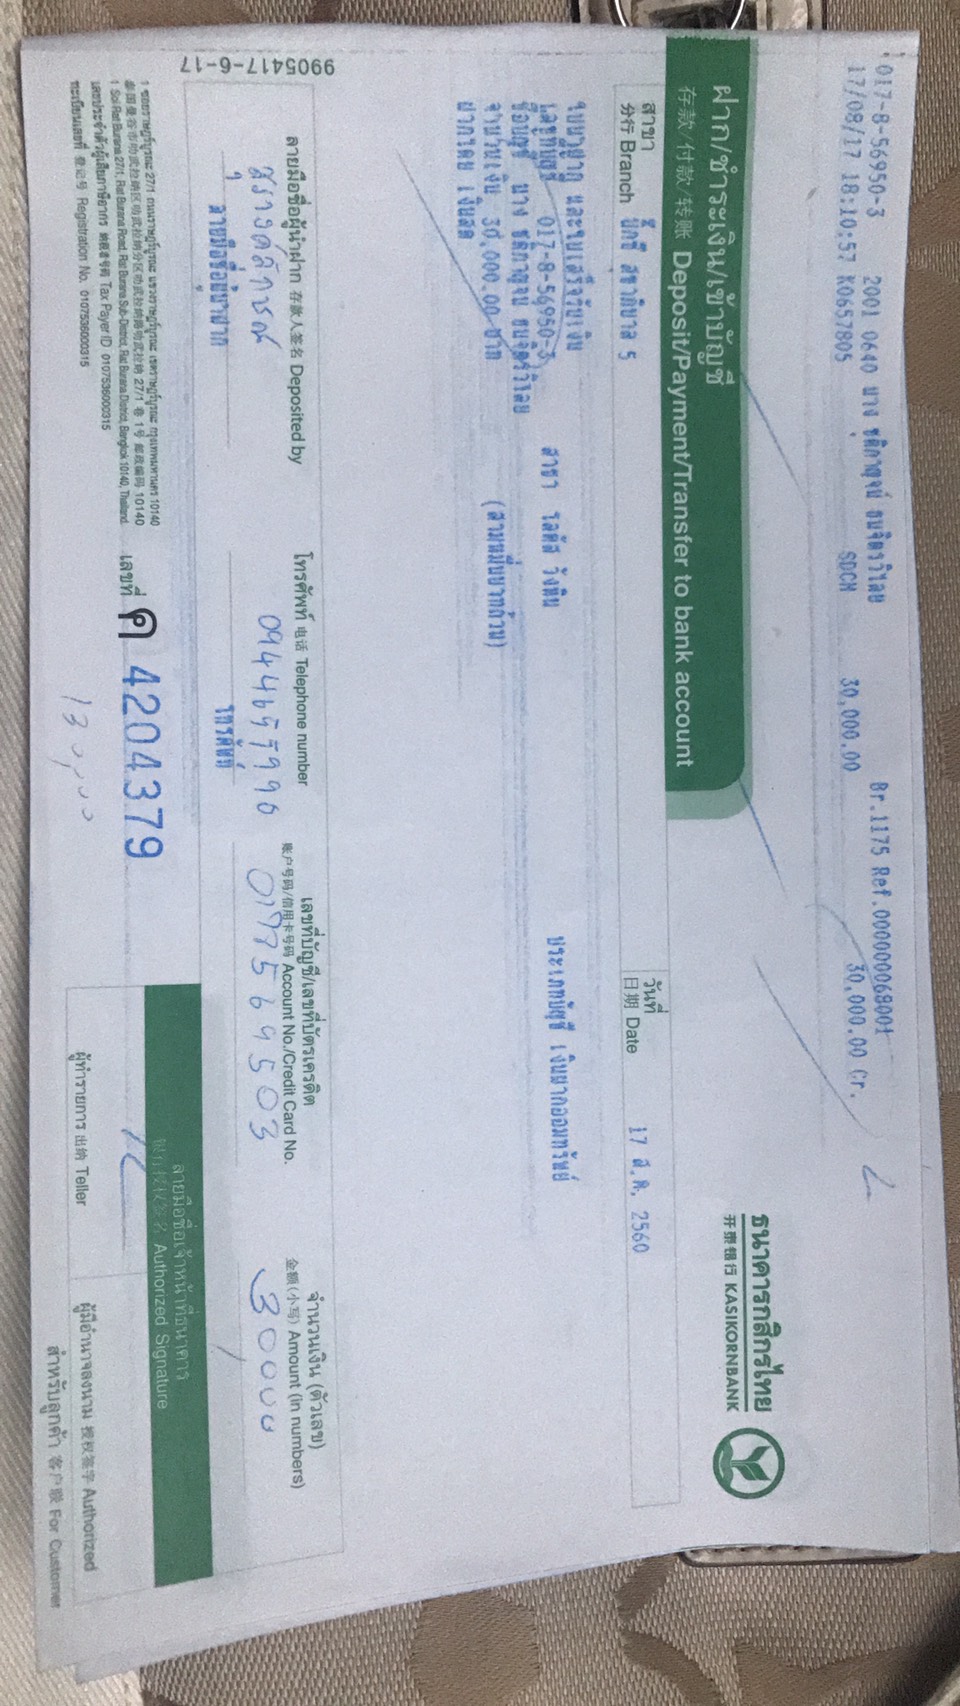 017-8-56950-3 2001 0640 นาง ชุติกาญจน์ ธนจิตรวิไลย Br.1175 Ref.000000068001
17/08/17 18:10:57 K0657805 SDCM 30,000.00 30,000.00 Cr.
ธนาคารกสิกรไทย
开泰银行 KASIKORNBANK
ฝาก/ชำระเงิน/เข้าบัญชี
存款/付款/转账 Deposit/Payment/Transfer to bank account
สาขา
分行 Branch บิ๊กซี สุขาภิบาล 5
วันที่
日期 Date 17 ส.ค. 2560
ใบนำฝาก และใบเสร็จรับเงิน
เลขที่บัญชี 017-8-56950-3 สาขา โลตัส วังหิน ประเภทบัญชี เงินฝากออมทรัพย์
ชื่อบัญชี นาง ชุติกาญจน์ ธนจิตรวิไลย
จำนวนเงิน 30,000.00 บาท (สามหมื่นบาทถ้วน)
ฝากโดย เงินสด
9905417-6-17
ลายมือชื่อผู้นำฝาก 存款人签名 Deposited by
สุรางค์ลักษณ์
ลายมือชื่อผู้นำฝาก
โทรศัพท์ 电话 Telephone number
โทรศัพท์
เลขที่บัญชี/เลขที่บัตรเครดิต
账户号码/信用卡号码 Account No./Credit Card No.
0178569503
จำนวนเงิน (ตัวเลข)
金额(小写) Amount (in numbers)
30000
1 ซอยราษฎร์บูรณะ 27/1 ถนนราษฎร์บูรณะ แขวงราษฎร์บูรณะ เขตราษฎร์บูรณะ กรุงเทพมหานคร 10140
泰国曼谷市叻武拉纳区叻武拉纳分区叻武拉纳路叻武拉纳 27/1 巷 1号 邮政编码 10140
1 Soi Rat Burana 27/1, Rat Burana Road, Rat Burana Sub-District, Rat Burana District, Bangkok 10140, Thailand.
เลขประจำตัวผู้เสียภาษีอากร 纳税者号码 Tax Payer ID 0107536000315
ทะเบียนเลขที่ 登记号 Registration No. 0107536000315
เลขที่ ค 4204379
ลายมือชื่อเจ้าหน้าที่ธนาคาร
银行授权签名 Authorized Signature
ผู้ทำรายการ 出纳 Teller
ผู้มีอำนาจลงนาม 授权签字 Authorized
สำหรับลูกค้า 客户联 For Customer